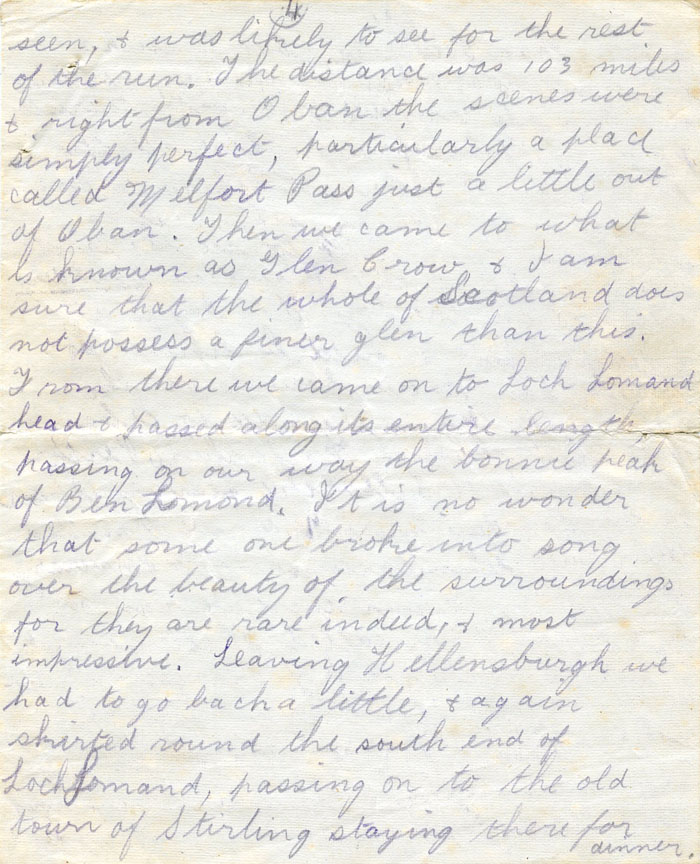 4
seen, & was lifrely to see for the rest
of the run. The distance was 103 miles
& right from Oban the scenes were
simply perfect, particularly a place
called Melfort Pass just a little out
of Oban. Then we came to what
is known as Glen Crow & I am
sure that the whole of Scotland does
not possess a finer glen than this.
From there we came on to Loch Lomand
head & passed along its entire length,
passing on our way the bonnie peak
of Ben Lomond. It is no wonder
that some one broke into song
over the beauty of the surroundings
for they are rare indeed, & most
impressive. Leaving Hellensburgh we
had to go back a little, & again
skirted round the south end of
Loch Lomand, passing on to the old
town of Stirling staying there for
dinner.